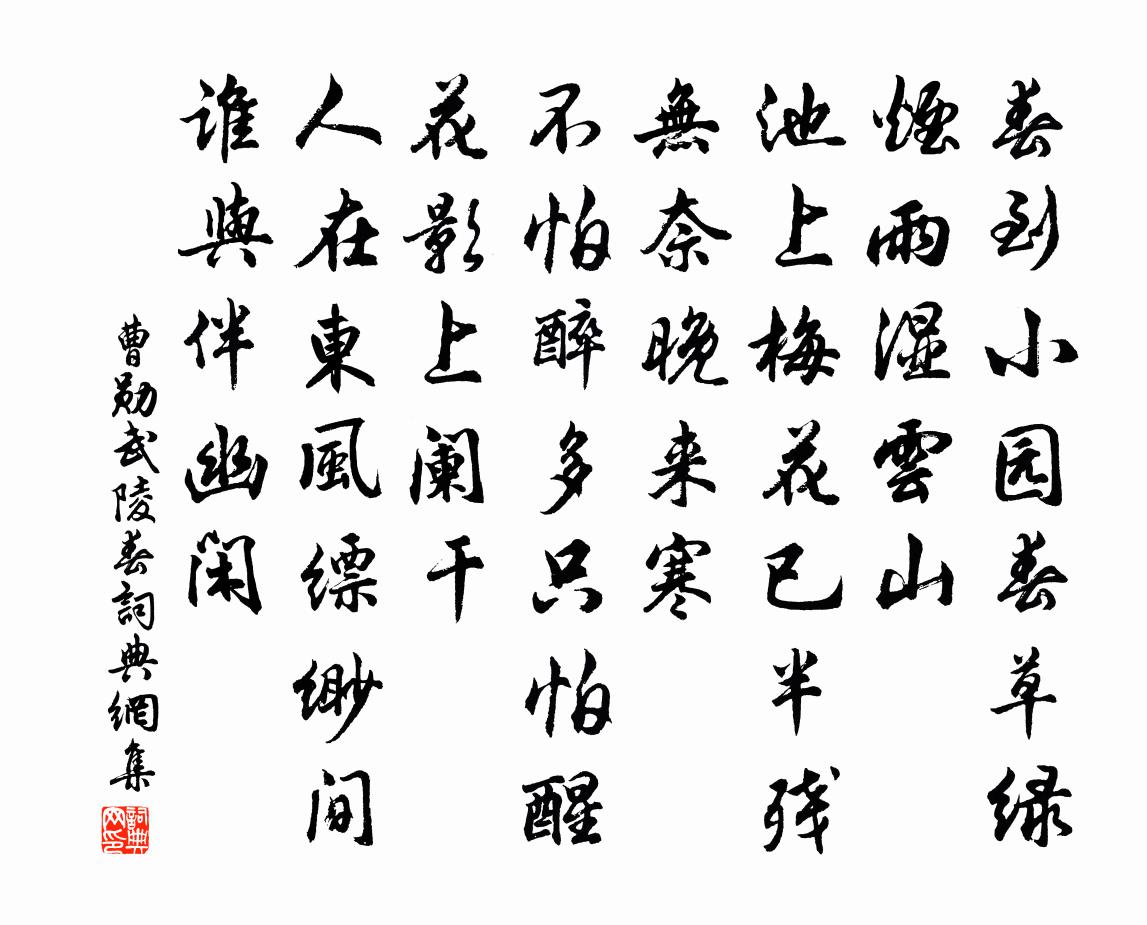 春到小园春草绿
煙雨湿雲山
池上梅花已半残
無奈晚来寒
不怕醉多只怕醒
花影上阑干
人在東風缥缈间
谁與伴幽闲
曹勋武陵春詞典網集
詞典网印